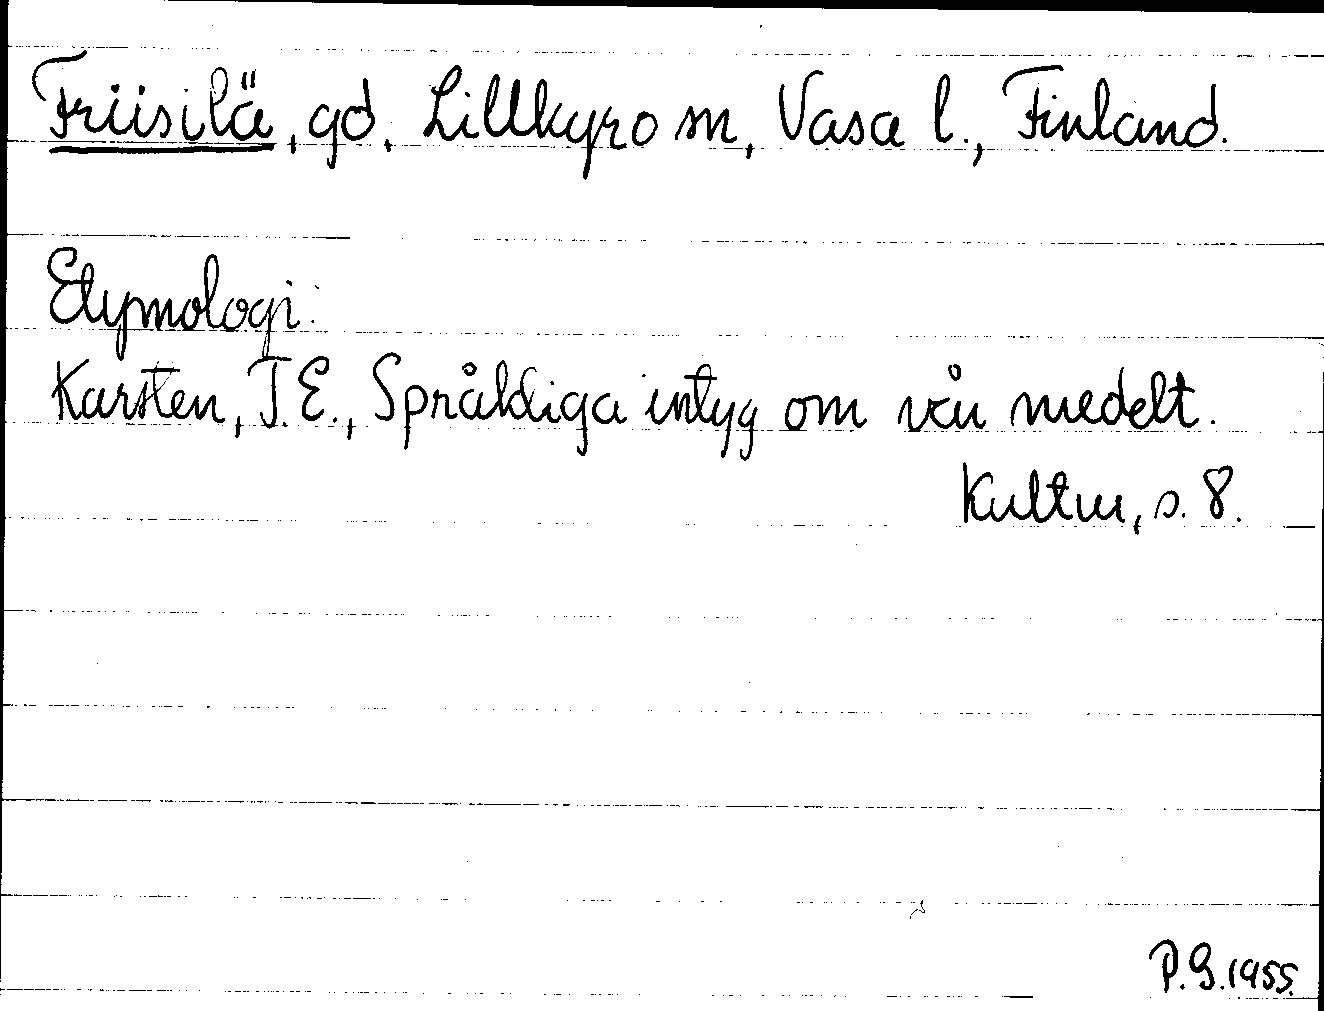 Friisilä, gd, Lillkyro sn, Vasa l., Finland.
Etymologi:
Karsten, T.E., Språkliga intyg om vår medelt.
Kultur, s. 8.
P.G. 1955.